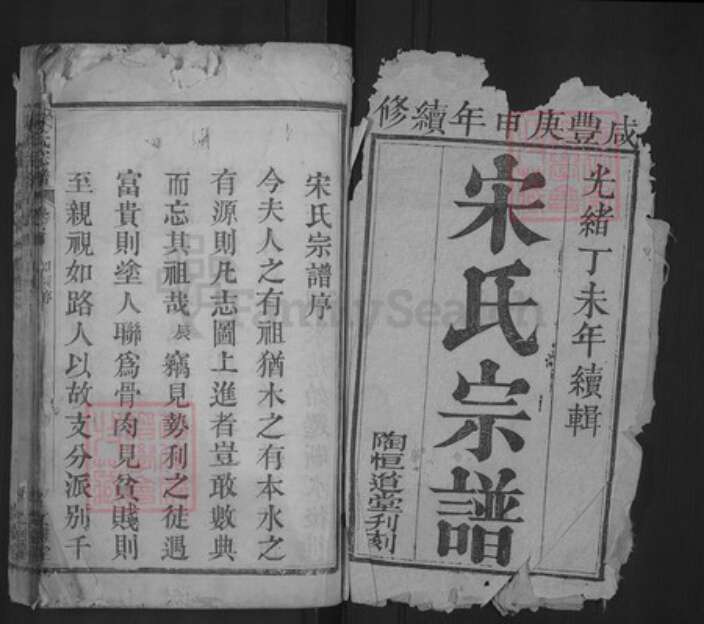 咸豐庚申年續修
光緒丁未年續輯
宋氏宗譜
陶恒道堂刋刻
宋氏宗譜序
今夫人之有祖猶木之有本水之
有源則凡志圖上進者豈敢數典
而忘其祖哉 竊見勢利之徒遇
富貴則塗人聯爲骨肉見貧賤則
至親視如路人以故支分派别千
FamilySearch